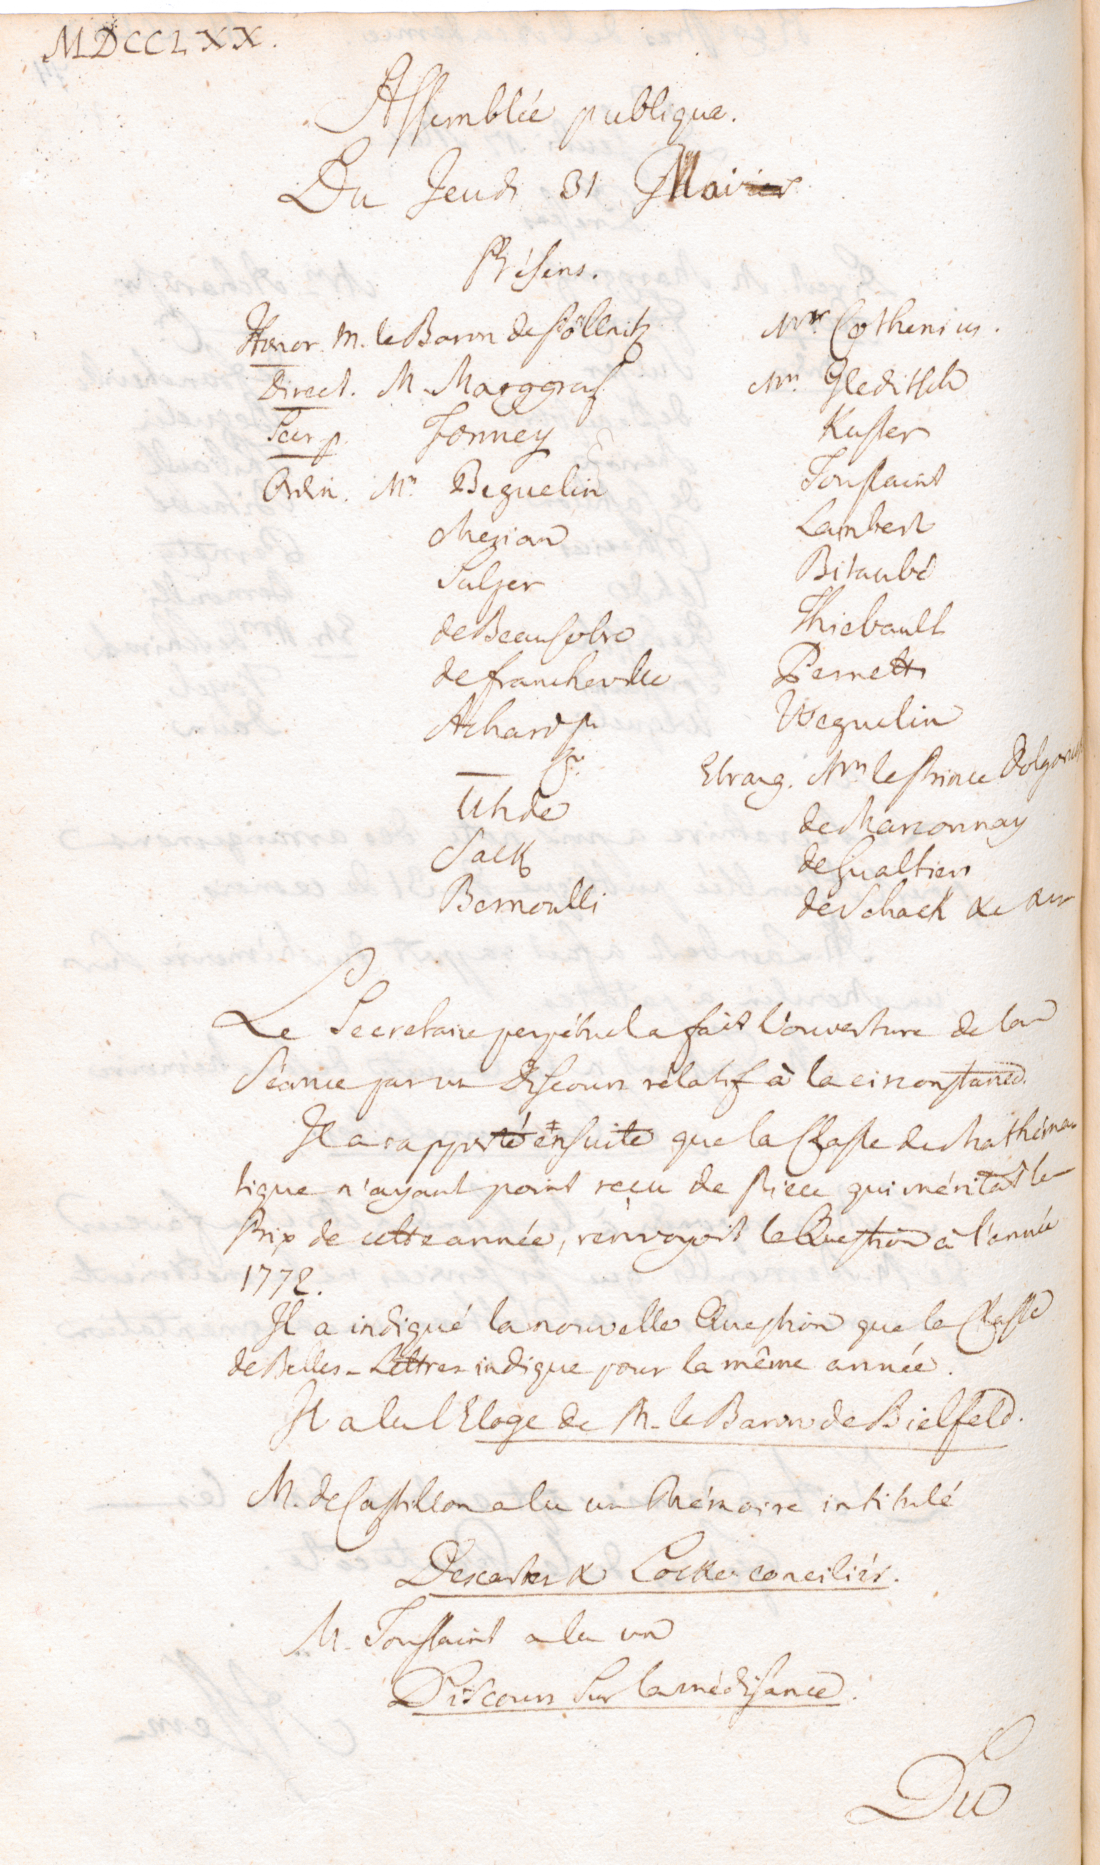 MDCCLXX.
Assemblée publique.
Du Jeudi 31 Mai
Présens.
Honor. M. le Baron de Pöllnitz
Direct. M. Marggraf
Secr. p. Formey
Ordin. Mrs Beguelin
Merian
Sulzer
de Beausobre
de Francheville
Achard p.
— f.
Uhde
Sack
Bernoulli
Mrs Cothenius.
Mrs Gleditsch
Kuster
Toussaint
Lambert
Bitaubé
Thiebault
Pernetti
Weguelin
Etrang. Mrs le Prince Dolgoruki
de Marconnay
de Gualtieri
de Schack &c &c
Le Secretaire perpétuel a fait l'ouverture de la
Séance par un Discours rélatif à la circonstance.
Il a rapporté ensuite que la Classe de Mathéma-
tique n'ayant point reçu de Piece qui méritat le
Prix de cette année, renvoyoit la Question à l'année
1772.
Il a indiqué la nouvelle Question que la Classe
de Belles-Lettres indique pour la même année.
Il a lu l'Eloge de M. le Baron de Bielfeld.
M. de Castillon a lu un Mémoire intitulé
Descartes & Locke conciliés.
M. Toussaint a lu un
Discours sur la médisance.
Du